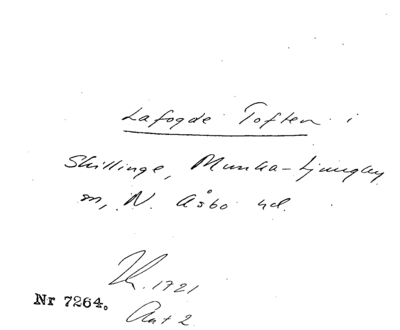 Lafogde Toften i
Skillinge, Munka-Ljungby
sn, N. Åsbo hd.
1921
Nr 7264.
Ant 2